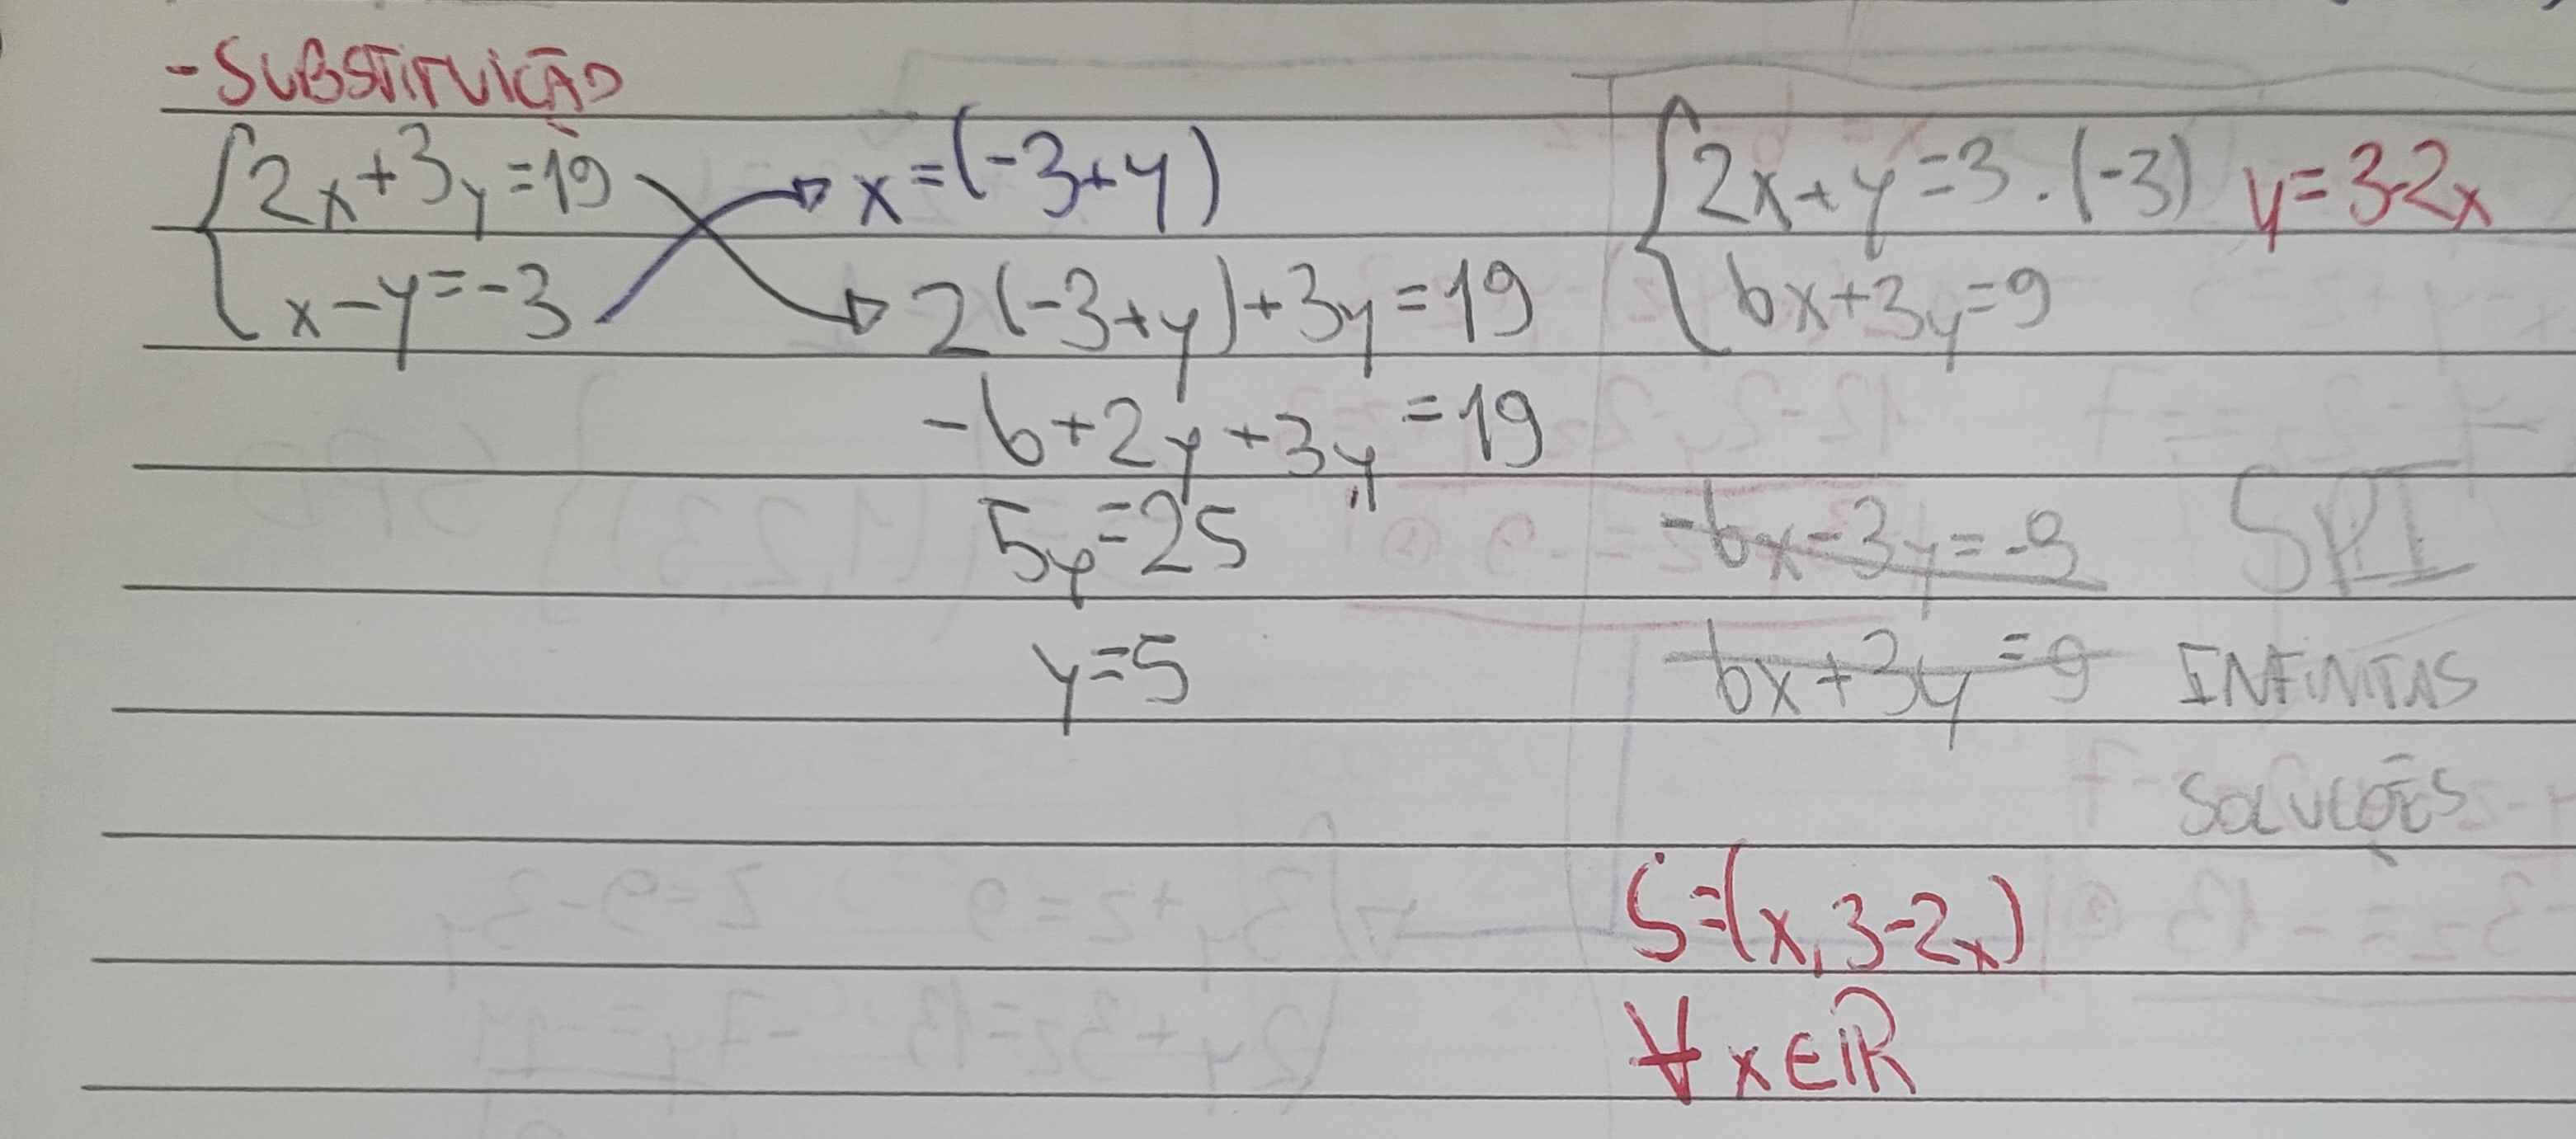 - SUBSTITUIÇÃO
2x+3y=19
x-y=-3
x=(-3+y)
2(-3+y)+3y=19
-6+2y+3y=19
5y=25
y=5
2x+y=3.(-3) y=3-2x
6x+3y=9
-6x-3y=-9 SPI
6x+3y=9 INFINITAS
SOLUÇÕES
S=(x,3-2x)
∀x∈ℝ